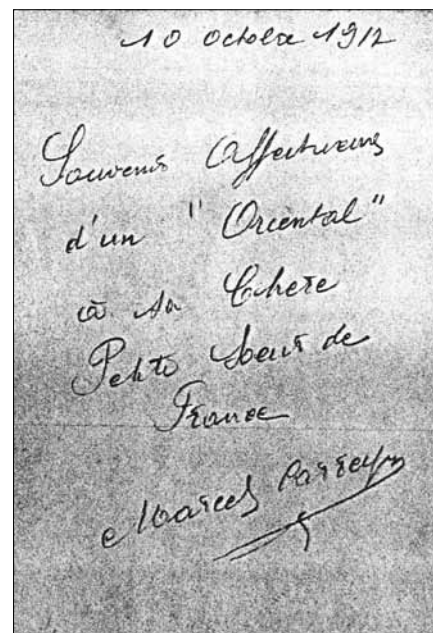 10 octobre 1912
Souvenir Affectueux
d'un "Oriental"
à sa Chère
Petite Soeur de
France
Marcel